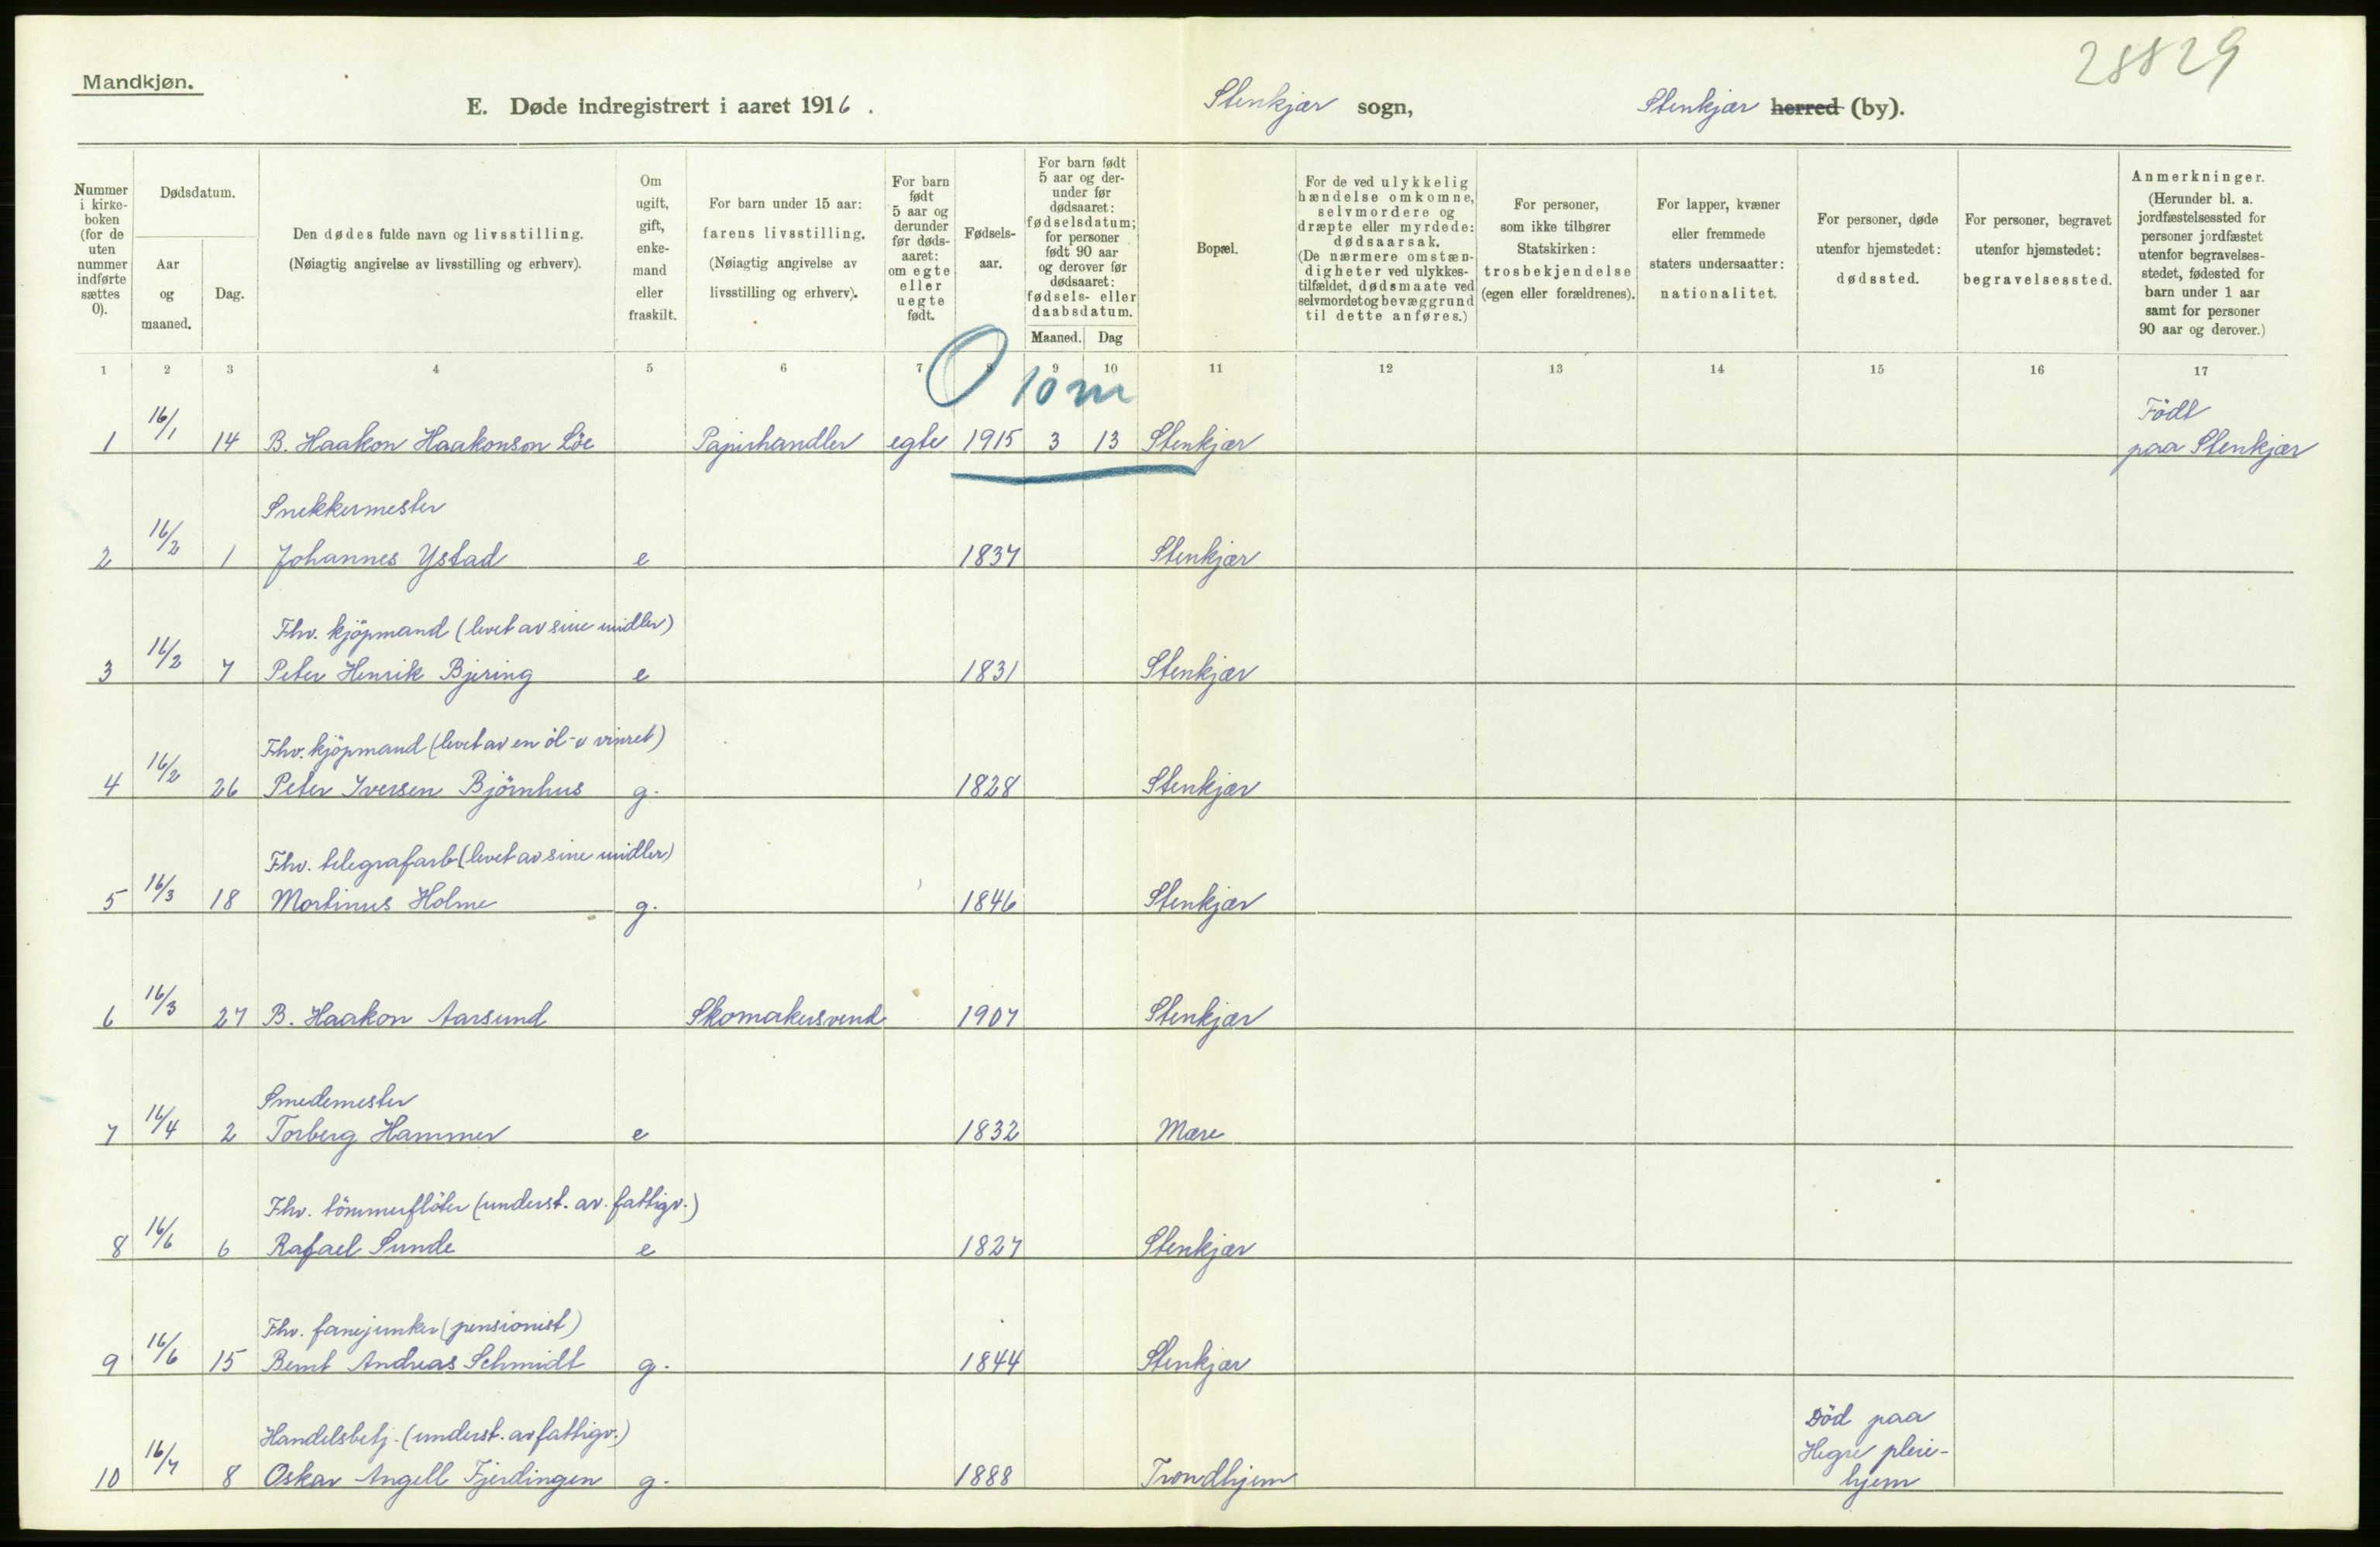 28829
Mandkjøn.
E. Døde indregistrert i aaret 1916. Stenkjær sogn, Stenkjær herred (by).
Nummer i kirke-boken (for de uten nummer indførte sættes 0).
Dødsdatum.
Aar og maaned.
Dag.
Den dødes fulde navn og livsstilling.
(Nøiagtig angivelse av livsstilling og erhverv).
Om ugift, gift, enke-mand eller fraskilt.
For barn under 15 aar: farens livsstilling. (Nøiagtig angivelse av livsstilling og erhverv).
For barn født 5 aar og derunder før døds-aaret: om egte eller uegte født.
Fødsels-aar.
For barn født 5 aar og der-under før dødsaaret: fødselsdatum; for personer født 90 aar og derover før dødsaaret: fødsels- eller daabsdatum.
Maaned. Dag
Bopæl.
For de ved ulykkelig hændelse omkomne, selvmordere og dræpte eller myrdede: dødsaarsak. (De nærmere omstæn-digheter ved ulykkes-tilfældet, dødsmaate ved selvmordet og bevæggrund til dette anføres.)
For personer, som ikke tilhører Statskirken: trosbekjendelse (egen eller forældrenes).
For lapper, kvæner eller fremmede staters undersaatter: nationalitet.
For personer, døde utenfor hjemstedet: dødssted.
For personer, begravet utenfor hjemstedet: begravelsessted.
Anmerkninger. (Herunder bl. a. jordfæstelsessted for personer jordfæstet utenfor begravelses-stedet, fødested for barn under 1 aar samt for personer 90 aar og derover.)
1 2 3 4 5 6 7 8 9 10 11 12 13 14 15 16 17
0 10 m
Født
1 16/1 14 B. Haakon Haakonson Löe Papirhandler egte 1915 3 13 Stenkjær paa Stenkjær
Snekkermester
2 16/2 1 Johannes Ystad e 1837 Stenkjær
Fhv. kjöpmand (levet av sine midler)
3 16/2 7 Peter Henrik Bjering e 1831 Stenkjær
Fhv. kjöpmand (levet av en öl- o vinret)
4 16/2 26 Peter Iversen Björnhus g. 1828 Stenkjær
Fhv. telegrafarb (levet av sine midler)
5 16/3 18 Mortinus Holme g. 1846 Stenkjær
6 16/3 27 B. Haakon Aarsund Skomakersvend 1907 Stenkjær
Smedemester
7 16/4 2 Torberg Hammer e 1832 Mære
Fhv. tömmerflöter (underst. av. fattigv.)
8 16/6 6 Rafael Sunde e 1827 Stenkjær
Fhv. fanejunker (pensionist)
9 16/6 15 Bernt Andreas Schmidt g. 1844 Stenkjær
Handelsbetj. (underst. av fattigv.)
10 16/7 8 Oskar Angell Fjerdingen g. 1888 Trondhjem
Död paa
Hegre pleie-
hjem